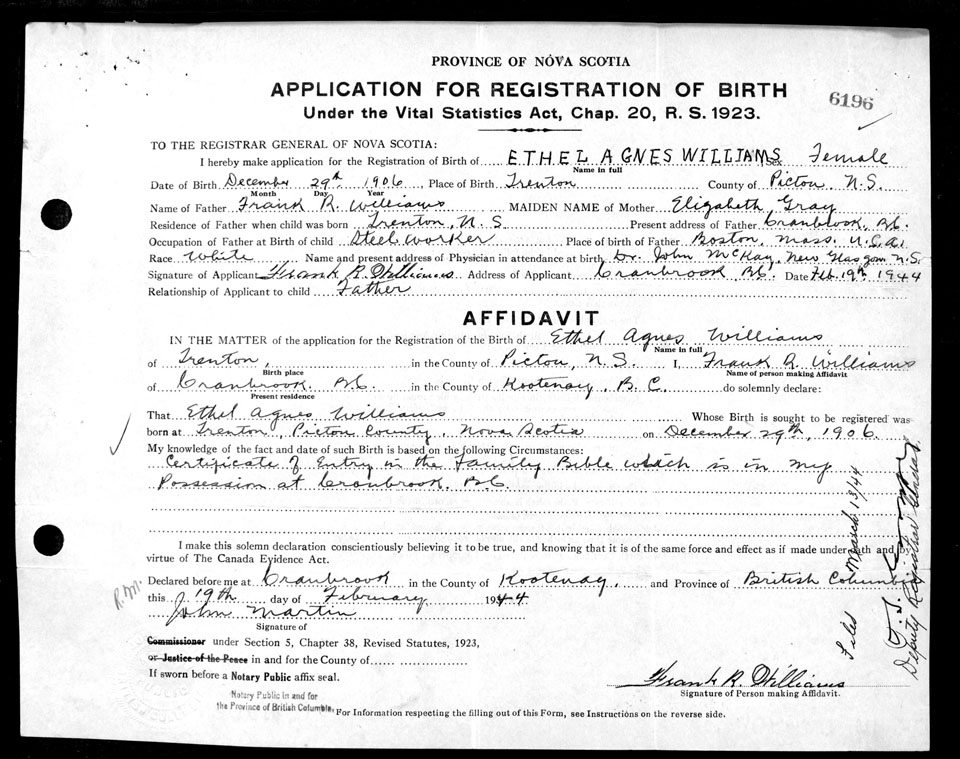 PROVINCE OF NOVA SCOTIA
APPLICATION FOR REGISTRATION OF BIRTH
6196
Under the Vital Statistics Act, Chap. 20, R. S. 1923.
TO THE REGISTRAR GENERAL OF NOVA SCOTIA:
I hereby make application for the Registration of Birth of ETHEL AGNES WILLIAMS Sex Female
Name in full
Date of Birth December 29th 1906 Place of Birth Trenton County of Pictou N.S.
Month Day Year
Name of Father Frank R. Williams MAIDEN NAME of Mother Elizabeth Gray
Residence of Father when child was born Trenton, N.S. Present address of Father Cranbrook, B.C.
Occupation of Father at Birth of child Steel Worker Place of birth of Father Boston, Mass. U.S.A.
Race White Name and present address of Physician in attendance at birth Dr. John McKay, New Glasgow N.S.
Signature of Applicant Frank R. Williams Address of Applicant Cranbrook B.C. Date Feb. 19th 1944
Relationship of Applicant to child Father
AFFIDAVIT
IN THE MATTER of the application for the Registration of the Birth of Ethel Agnes Williams
Name in full
of Trenton, in the County of Pictou, N.S. I, Frank R. Williams
Birth place Name of person making Affidavit
of Cranbrook. B.C. in the County of Kootenay, B.C. do solemnly declare:
Present residence
That Ethel Agnes Williams Whose Birth is sought to be registered was
born at Trenton, Pictou County, Nova Scotia on December 29th, 1906.
My knowledge of the fact and date of such Birth is based on the following Circumstances:
Certificate of Entry in the Family Bible which is in my
Possession at Cranbrook. B.C.
I make this solemn declaration conscientiously believing it to be true, and knowing that it is of the same force and effect as if made under oath and by
virtue of The Canada Evidence Act.
Declared before me at Cranbrook in the County of Kootenay, and Province of British Columbia
this 19th day of February 1944
John Martin
Signature of
Commissioner under Section 5, Chapter 38, Revised Statutes, 1923,
or Justice of the Peace in and for the County of
If sworn before a Notary Public affix seal.
Notary Public in and for
the Province of British Columbia.
Frank R. Williams
Signature of Person making Affidavit.
For Information respecting the filling out of this Form, see Instructions on the reverse side.
R.M.
Filed March 13/44
Deputy Registrar General